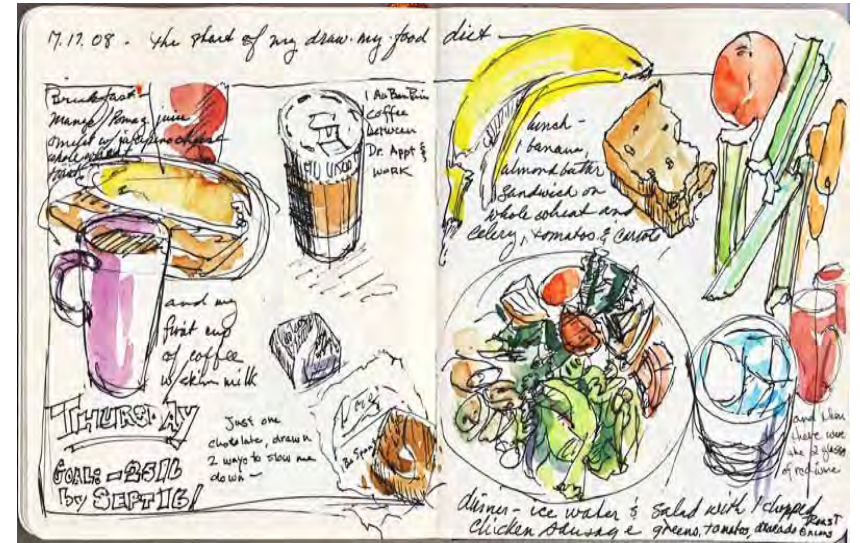 7.17.08 - the start of my draw-my-food diet -
Breakfast -
Mango/Pomeg. juice
omelet w/ jalapeno cheese
whole wheat
toast
1 Au Bon Pain
Coffee
between
Dr. Appt &
WORK
and my
first cup
of coffee
w/ skim milk
THURSDAY
GOAL: -25 lb
by SEPT 16!
Just one
chocolate, drawn
2 ways to slow me
down -
Lunch -
1 banana,
almond butter
sandwich on
whole wheat and
celery, tomatos & carrots
and then
there were
the 2 glasses
of red wine
dinner - ice water & salad with 1 chopped
chicken sausage greens, tomatos, avocado